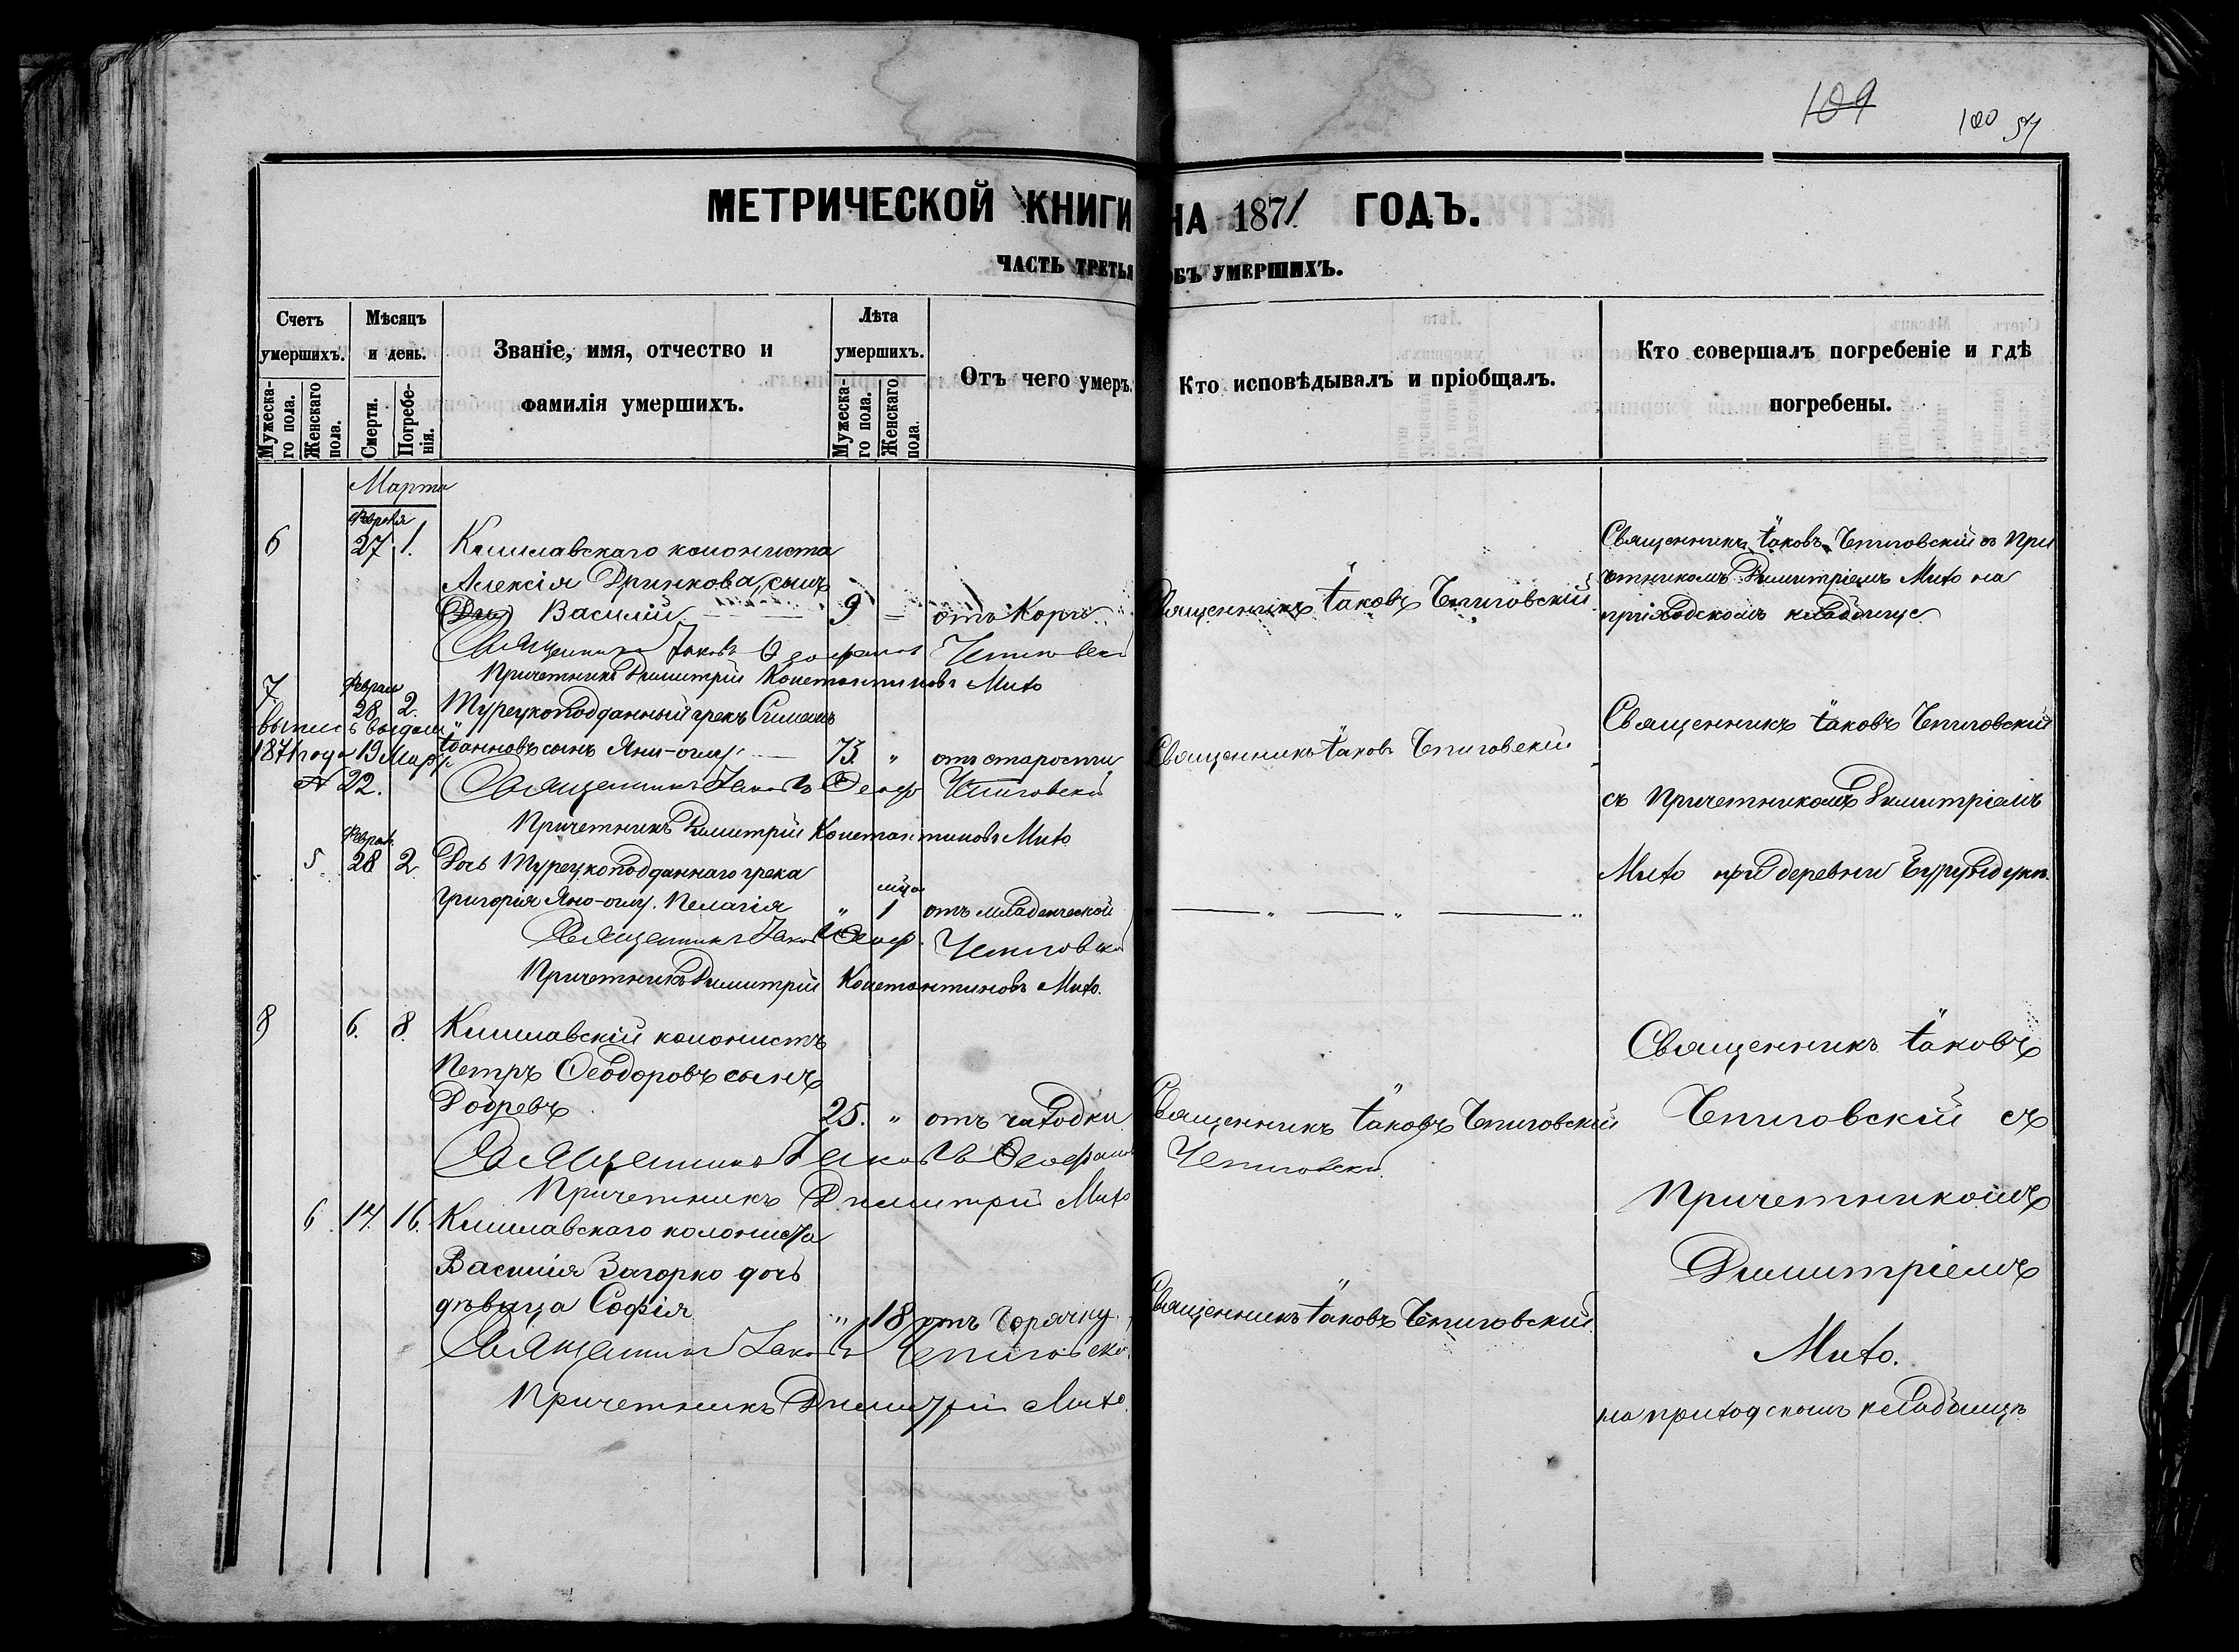 109
100
МЕТРИЧЕСКОЙ КНИГИ НА 1871 ГОДЪ.
ЧАСТЬ ТРЕТЬЯ ОБЪ УМЕРШИХЪ.
Счетъ умершихъ.
Мужеска-го пола.
Женскаго пола.
Мѣсяцъ и день.
Смерти.
Погребе-нія.
Званіе, имя, отчество и
фамилія умершихъ.
Лѣта умершихъ.
Мужеска-го пола.
Женскаго пола.
Отъ чего умеръ.
Кто исповѣдывалъ и пріобщалъ.
Кто совершалъ погребеніе и гдѣ
погребены.
Марта
6
27 1.
Кишлавскаго колониста
Алексія Дринкова, сынъ
Василій 9 отъ Кори.
Священникъ Іаковъ Чепиговскій
Священникъ Іаковъ Чепиговскій съ При
четникомъ Димитріемъ Мито на
приходскомъ кладбище
Священникъ Іаковъ Чепиговскій
Причетникъ Димитрій Константиновъ Мито
7
28 2.
Турецкоподданный грекъ Симеонъ
Іоанновъ сынъ Яни-оглу 73. " отъ старости
Священникъ Іаковъ Чепиговскій
1871 года 19 Мар
№ 22.
Священникъ Іаковъ Чепиговскій
Причетникъ Димитрій Константиновъ Мито
Священникъ Іаковъ Чепиговскій
съ Причетникомъ Димитріемъ
Мито при деревни Бурундуки.
5
28 2
Дочь Турецкоподданнаго грека
Григорія Яни-оглу. Пелагія " 1 отъ младенческой
Священникъ Іаковъ Чепиговскій
Причетникъ Димитрій Константиновъ Мито.
8 6. 8.
Кишлавскій колонистъ
Петръ Ѳеодоровъ сынъ
Добревъ 25. " отъ чаходки
Священникъ Іаковъ Чепиговскій
Священникъ Іаковъ Чепиговскій
Причетникъ Димитрій Мито
6. 14. 16.
Кишлавскаго колониста
Василія Загорко дочь
дѣвица Софія " 18 отъ горячку
Священникъ Іаковъ Чепиговскій
Священникъ Іаковъ Чепиговскій
Причетникъ Димитрій Мито.
Священникъ Іаковъ
Чепиговскій съ
Причетникомъ
Димитріемъ
Мито.
на приходскомъ кладбищѣ